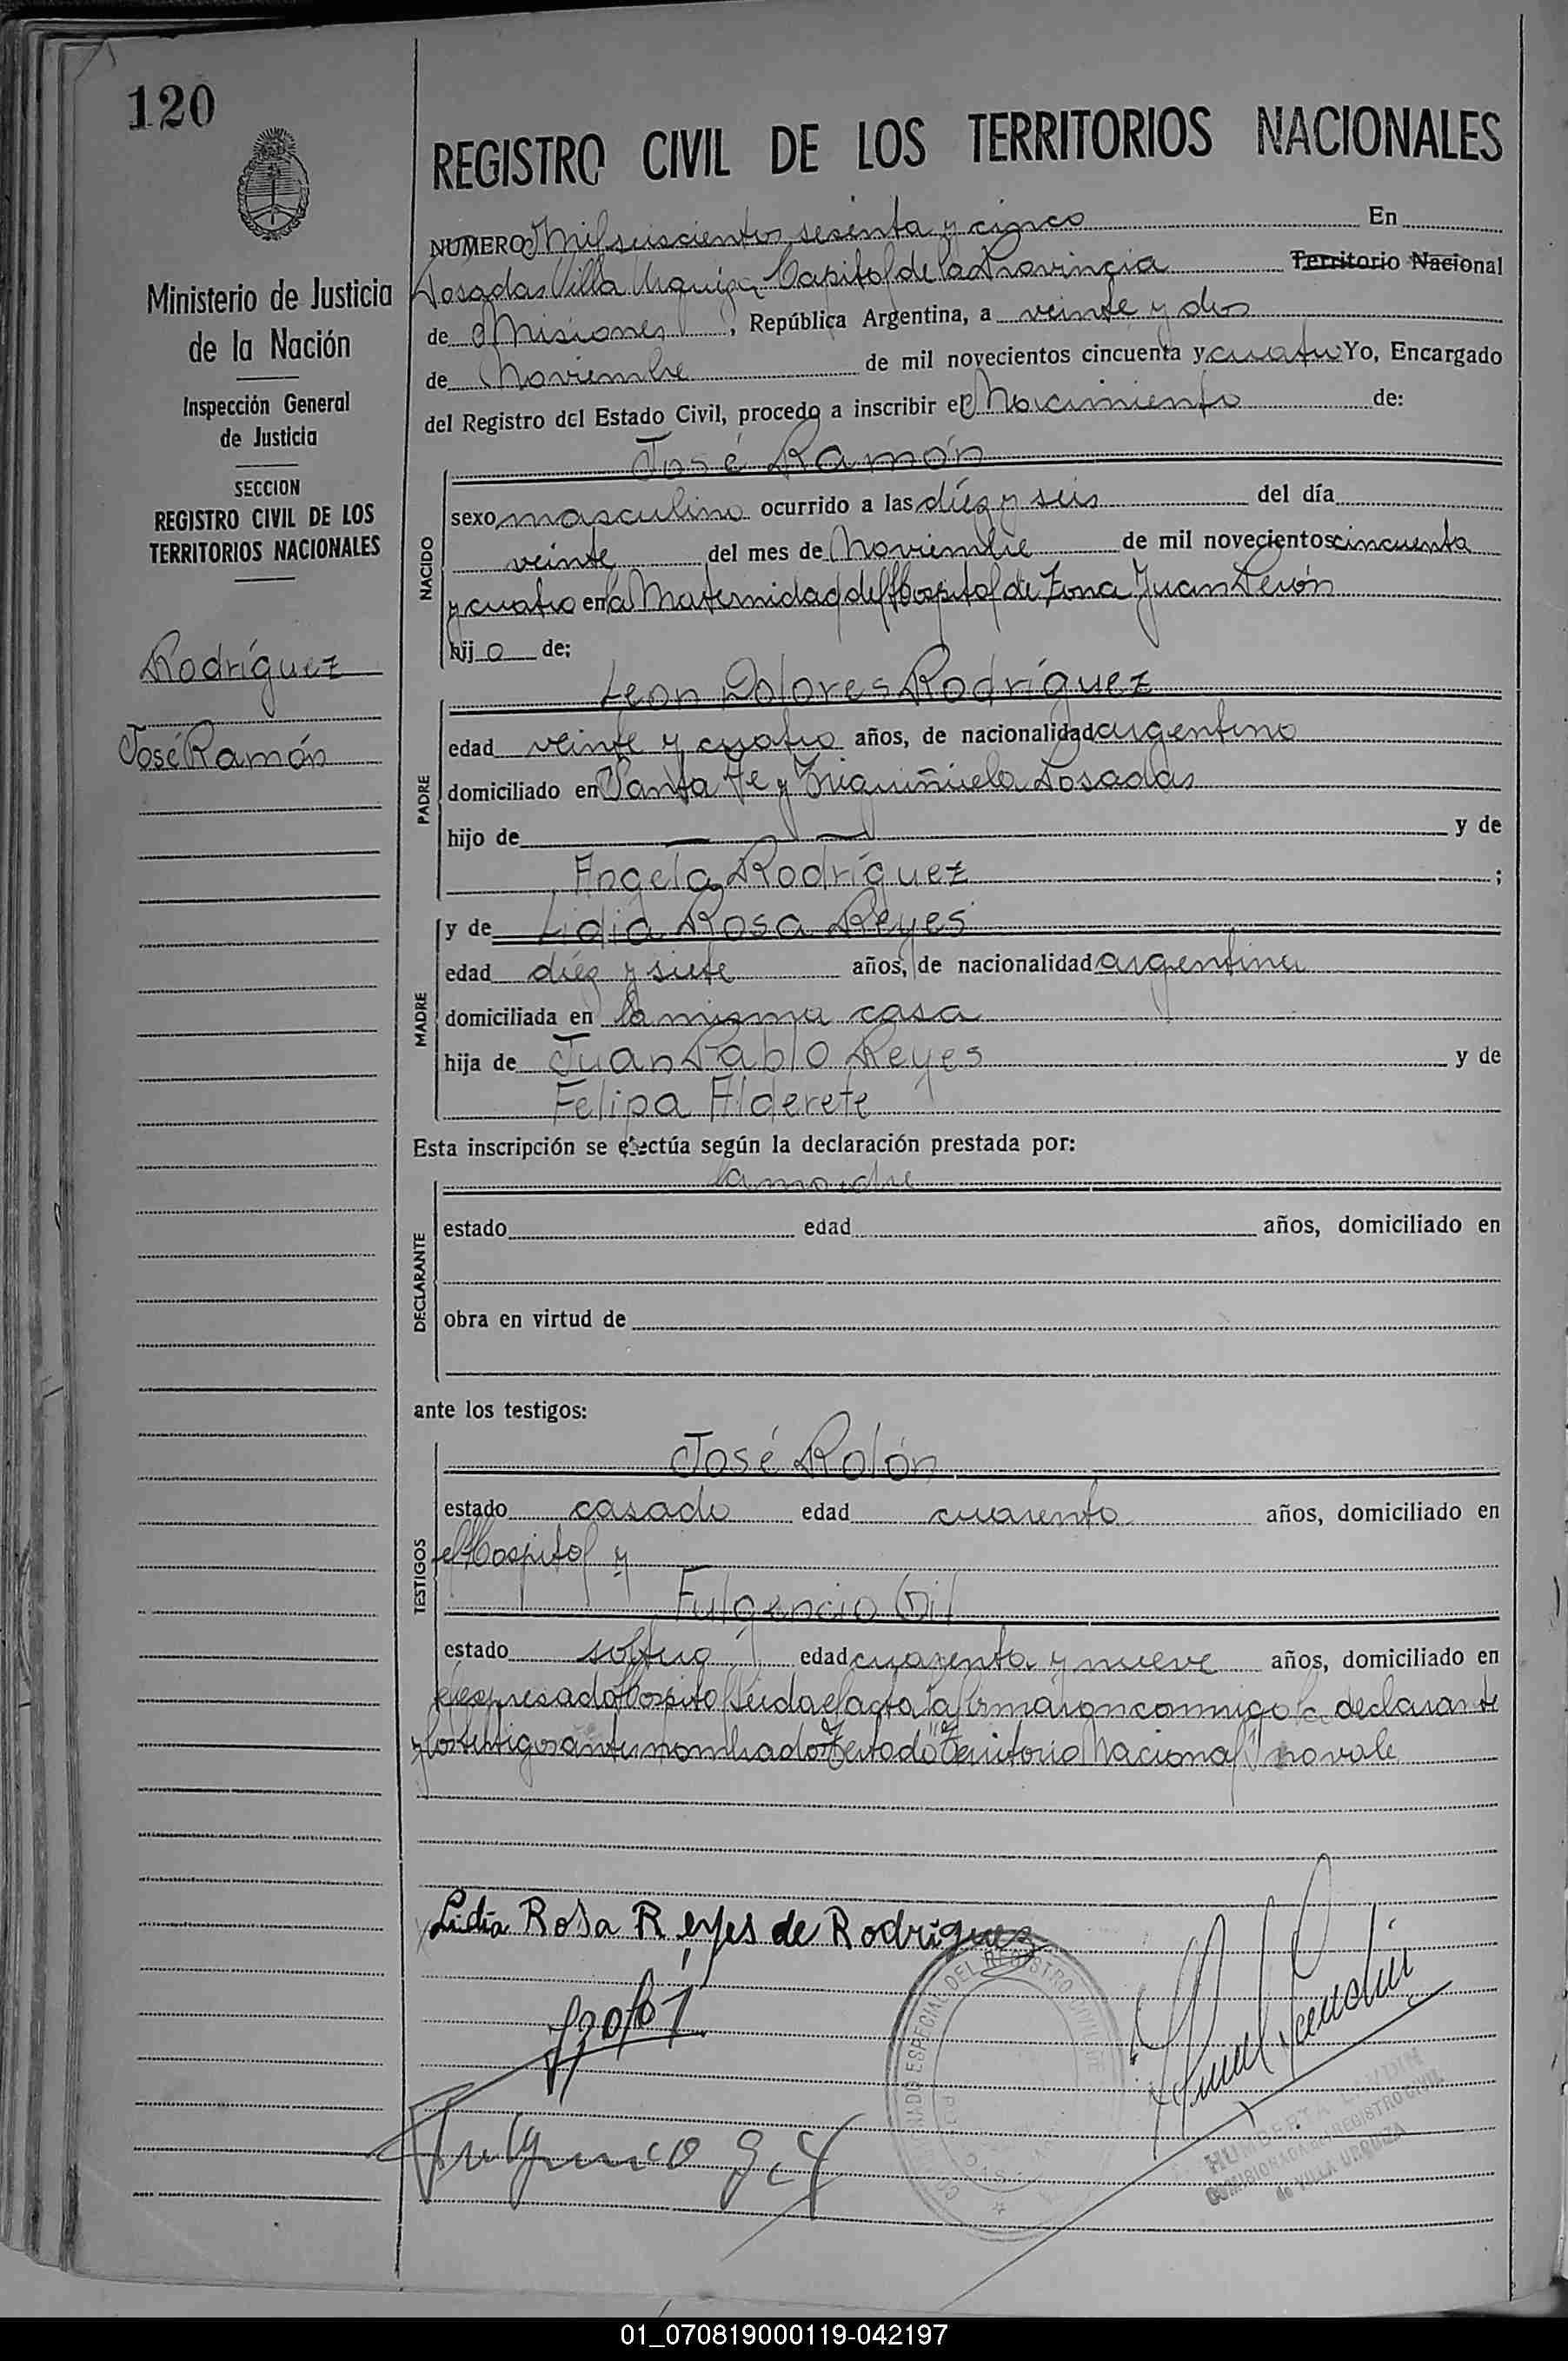 120
REGISTRO CIVIL DE LOS TERRITORIOS NACIONALES
Ministerio de Justicia
de la Nación
Inspección General
de Justicia
SECCION
REGISTRO CIVIL DE LOS
TERRITORIOS NACIONALES
Rodríguez
José Ramón
NUMERO Mil seiscientos sesenta y cinco En
Posadas Villa Urquiza Capital de la Provincia Territorio Nacional
de Misiones, República Argentina, a veinte y dos
de Noviembre de mil novecientos cincuenta y cuatro Yo, Encargado
del Registro del Estado Civil, procedo a inscribir el Nacimiento de:
José Ramón
NACIDO
sexo masculino ocurrido a las diéz y seis del día
veinte del mes de Noviembre de mil novecientos cincuenta
y cuatro en la Maternidad del Hospital de Zona Juan Perón
hijo de:
Leon Dolores Rodríguez
PADRE
edad veinte y cuatro años, de nacionalidad argentino
domiciliado en Santa Fe y Posadas
hijo de y de
Angela Rodríguez;
MADRE
y de Lidia Rosa Reyes
edad diéz y siete años, de nacionalidad argentina
domiciliada en la misma casa
hija de Juan Pablo Reyes y de
Felipa Alderete
Esta inscripción se efectúa según la declaración prestada por:
la madre
DECLARANTE
estado edad años, domiciliado en
obra en virtud de
ante los testigos:
José Rolón
TESTIGOS
estado casado edad cuarenta años, domiciliado en
el Hospital y
Fulgencio Gil
estado soltero edad cuarenta y nueve años, domiciliado en
el expresado Hospital Leida el acta la firmáron conmigo la declarante
y los testigos antes nombrados Testado "Territorio Nacional" no vale
Lidia Rosa Reyes de Rodríguez
Fulgencio Gil
ESPECIAL DEL REGISTRO CIVIL DE
REGISTRO CIVIL
de VILLA URQUIZA
01_070819000119-042197